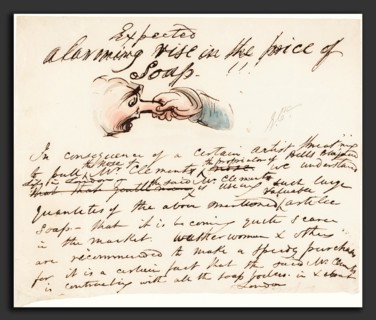 Expected
alarming rise in the price of
Soap - !!!
In consequence of a certain artist threat'ning
to pull Mr Clements the nose we understand
the said Mr Clements is using such large
quantities of the above mentioned valuable article
soap - that it is becoming quite scarce
in the market. washerwomen & others
are recommended to make a speedy purchase
for it is a certain fact that the said Mr
is contracting with all the soap in & about
London